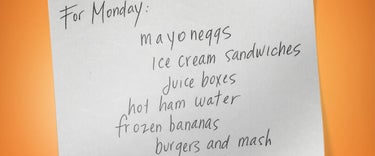 For Monday:
mayoneggs
Ice cream sandwiches
Juice boxes
hot ham water
frozen bananas
burgers and mash